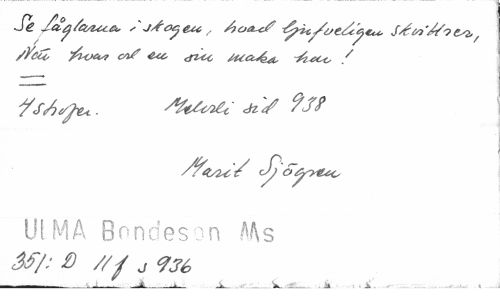 Se fåglarna i skogen, hvad ljufveligen skvittrer,
När hvar och en sin maka har!
4 strofer. Melodi sid 938
Marit Sjögren
ULMA Bondeson Ms
351: D 11f s 936